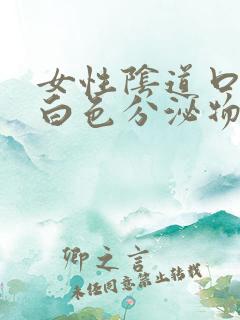 女性陰道口
白色分泌物
卿之言
未经同意禁止转载